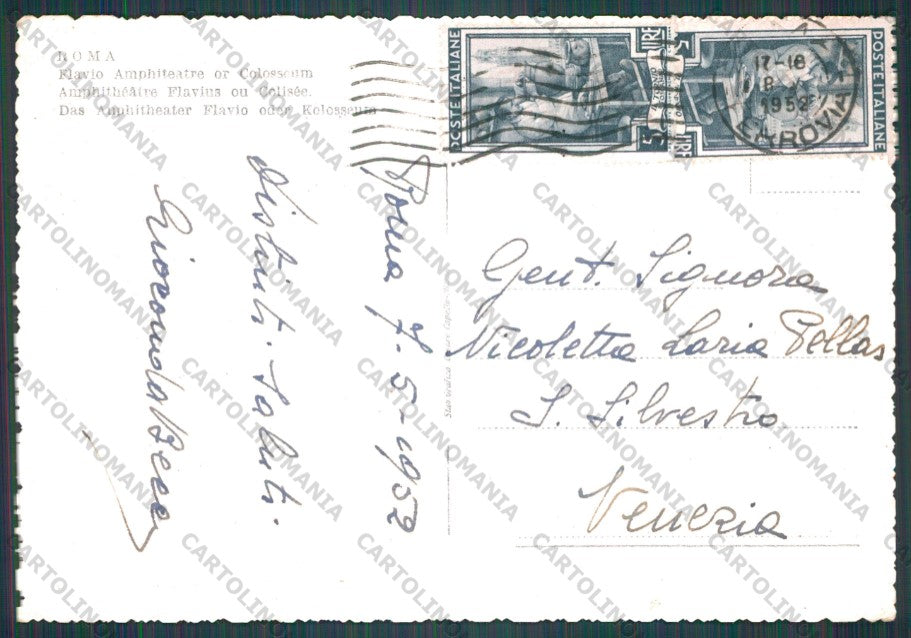 ROMA
Flavio Amphiteatre or Colosseum
Amphithéâtre Flavius ou Colisée.
Das Amphitheater Flavio oder Kolosseum
POSTE ITALIANE
LIRE
5
5
LIRE
POSTE ITALIANE
17-18
1952
FERROVIA
Roma 7.5-1952
Distinti Saluti.
Gioconda
Gent. Signora
Nicoletta Laria Pellas
S. Silvestro
Venezia
CARTOLINOMANIA